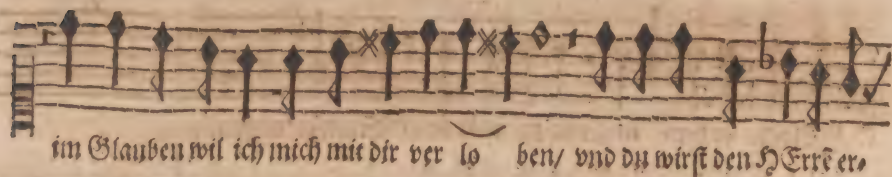 im Glauben wil ich mich mit dir ver lo ben/ vnd du wirst den HErrẽ er-